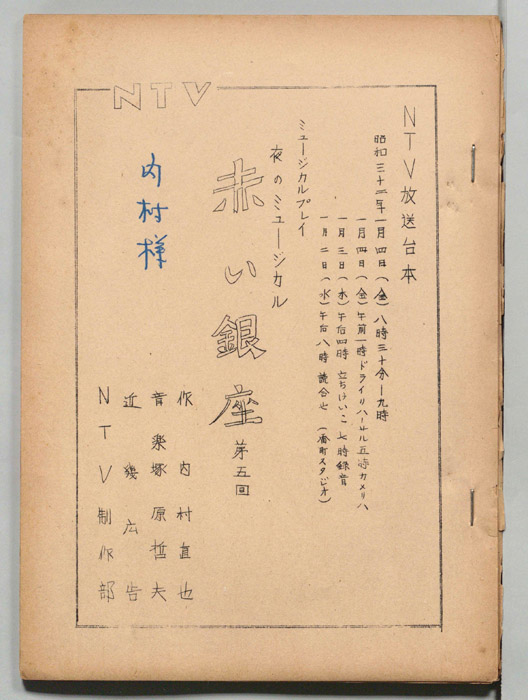 NTV
NTV放送台本
昭和三十二年一月四日(金)八時三十分ー九時
一月四日(金)午前一時ドライリハーサル五時カメリハ
一月三日(木)午后四時 立ちげいこ 七時録音
一月二日(水)午后八時 読合せ (番町スタジオ)
ミュージカルプレイ
夜のミュージカル
赤い銀座 第五回
内村様
作 内村直也
音楽 塚原哲夫
近畿広告
NTV制作部